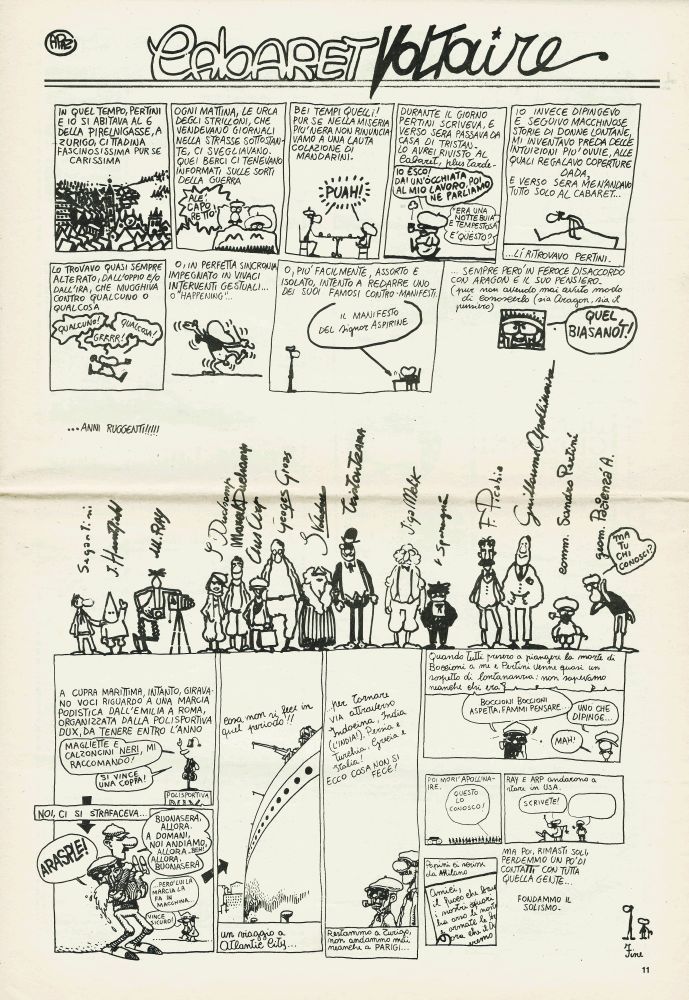 APAZ
CABARET VOLTAIRE
IN QUEL TEMPO, PERTINI
E IO SI ABITAVA AL 6
DELLA PIRELNIGASSE, A
ZURIGO, CITTADINA
FASCINOSISSIMA PUR SE
CARISSIMA
OGNI MATTINA, LE URLA
DEGLI STRILLONI, CHE
VENDEVANO GIORNALI
NELLA STRASSE SOTTOSTAN-
TE, CI SVEGLIAVANO.
QUEI BERCI CI TENEVANO
INFORMATI SULLE SORTI
DELLA GUERRA
ALE'
CAPO
RETTO!
BEI TEMPI QUELLI!
PUR SE NELLA MISERIA
PIU' NERA NON RINUNCIA
VAMO A UNA LAUTA
COLAZIONE DI
MANDARINI.
PUAH!
DURANTE IL GIORNO
PERTINI SCRIVEVA, E
VERSO SERA PASSAVA DA
CASA DI TRISTAN.
LO AUREI RIVISTO AL
Cabaret, plus tarde-
IO ESCO!
DAI UN'OCCHIATA
AL MIO LAVORO, POI
NE PARLIAMO
"ERA UNA
NOTTE BUIA
E TEMPESTOSA"
E' QUESTO?
IO INVECE DIPINGEVO
E SEGUIVO MACCHINOSE
STORIE DI DONNE LONTANE,
MI INVENTAVO PREDA DELLE
INTUIZIONI PIU' OVVIE, ALLE
QUALI REGALAVO COPERTURE
DADA,
E VERSO SERA ME N'ANDAVO
TUTTO SOLO AL CABARET...
...LI' RITROVAVO PERTINI.
LO TROVAVO QUASI SEMPRE
ALTERATO, DALL'OPPIO E/O
DALL'IRA, CHE MUGGHIAVA
CONTRO QUALCUNO O
QUALCOSA
QUALCUNO!
QUALCOSA!
GRRRR!
O, IN PERFETTA SINCRONIA
IMPEGNATO IN VIVACI
INTERVENTI GESTUALI...
O "HAPPENING"...
O, PIU' FACILMENTE, ASSORTO E
ISOLATO, INTENTO A REDARRE UNO
DEI SUOI FAMOSI CONTRO-MANIFESTI.
IL MANIFESTO
DEL Signor ASPIRINE
... SEMPRE PERO' IN FEROCE DISACCORDO
CON ARAGON E IL SUO PENSIERO.
(pur non avendo mai avuto modo
di conoscerlo (sia Aragon, sia il
pensiero)
QUEL
BIASANOT!
...ANNI RUGGENTI!!!!!
Segantini
J. Heartfield
M. RAY
S. Duchamp
Marcel Duchamp
Ans Arp
Georges Grosz
Tristan Tzara
F. Picabia
Guillaume Apollinaire
comm. Sandro Pertini
geom. Pazienza A.
MA
TU
CHI
CONOSCI?
A CUPRA MARITTIMA, INTANTO, GIRAVA-
NO VOCI RIGUARDO A UNA MARCIA
PODISTICA DALL'EMILIA A ROMA,
ORGANIZZATA DALLA POLISPORTIVA
DUX, DA TENERE ENTRO L'ANNO
MAGLIETTE E
CALZONCINI NERI, MI
RACCOMANDO!
SI VINCE
UNA COPPA!
POLISPORTIVA
NOI, CI SI STRAFACEVA...
ARAGLE!
BUONASERA,
ALLORA.
A DOMANI,
NOI ANDIAMO,
ALLORA... BEH!
ALLORA,
BUONASERA
...PERO' LUI LA
MARCIA LA
FA IN
MACCHINA...
VINCE
SICURO!
Cosa non si fece in
quel periodo!!
un viaggio a
Atlantic City...
Per tornare
VIA attraverso
Indocina, India
(L'INDIA!), Persia e
Turchia, Grecia e
Italia!
ECCO COSA NON SI
FECE!
Restammo a Zurigo,
non andammo mai
neanche a PARIGI...
Quando tutti presero a piangere la morte di
Boccioni a me e Pertini venne quasi un
sospetto di lontananza: non sapevamo
neanche chi era!
BOCCIONI BOCCIONI
ASPETTA, FAMMI PENSARE...
UNO CHE
DIPINGE...
MAH!
POI MORI' APOLLINA-
IRE.
QUESTO
LO
CONOSCO!
RAY E ARP andarono a
stare in USA.
SCRIVETE!
MA POI, RIMASTI SOLI,
PERDEMMO UN PO' DI
CONTATTI CON TUTTA
QUELLA GENTE...
FONDAMMO IL
SOLISMO.
da Milano
Amici,
il fuoco che
i nostri
Fine
11